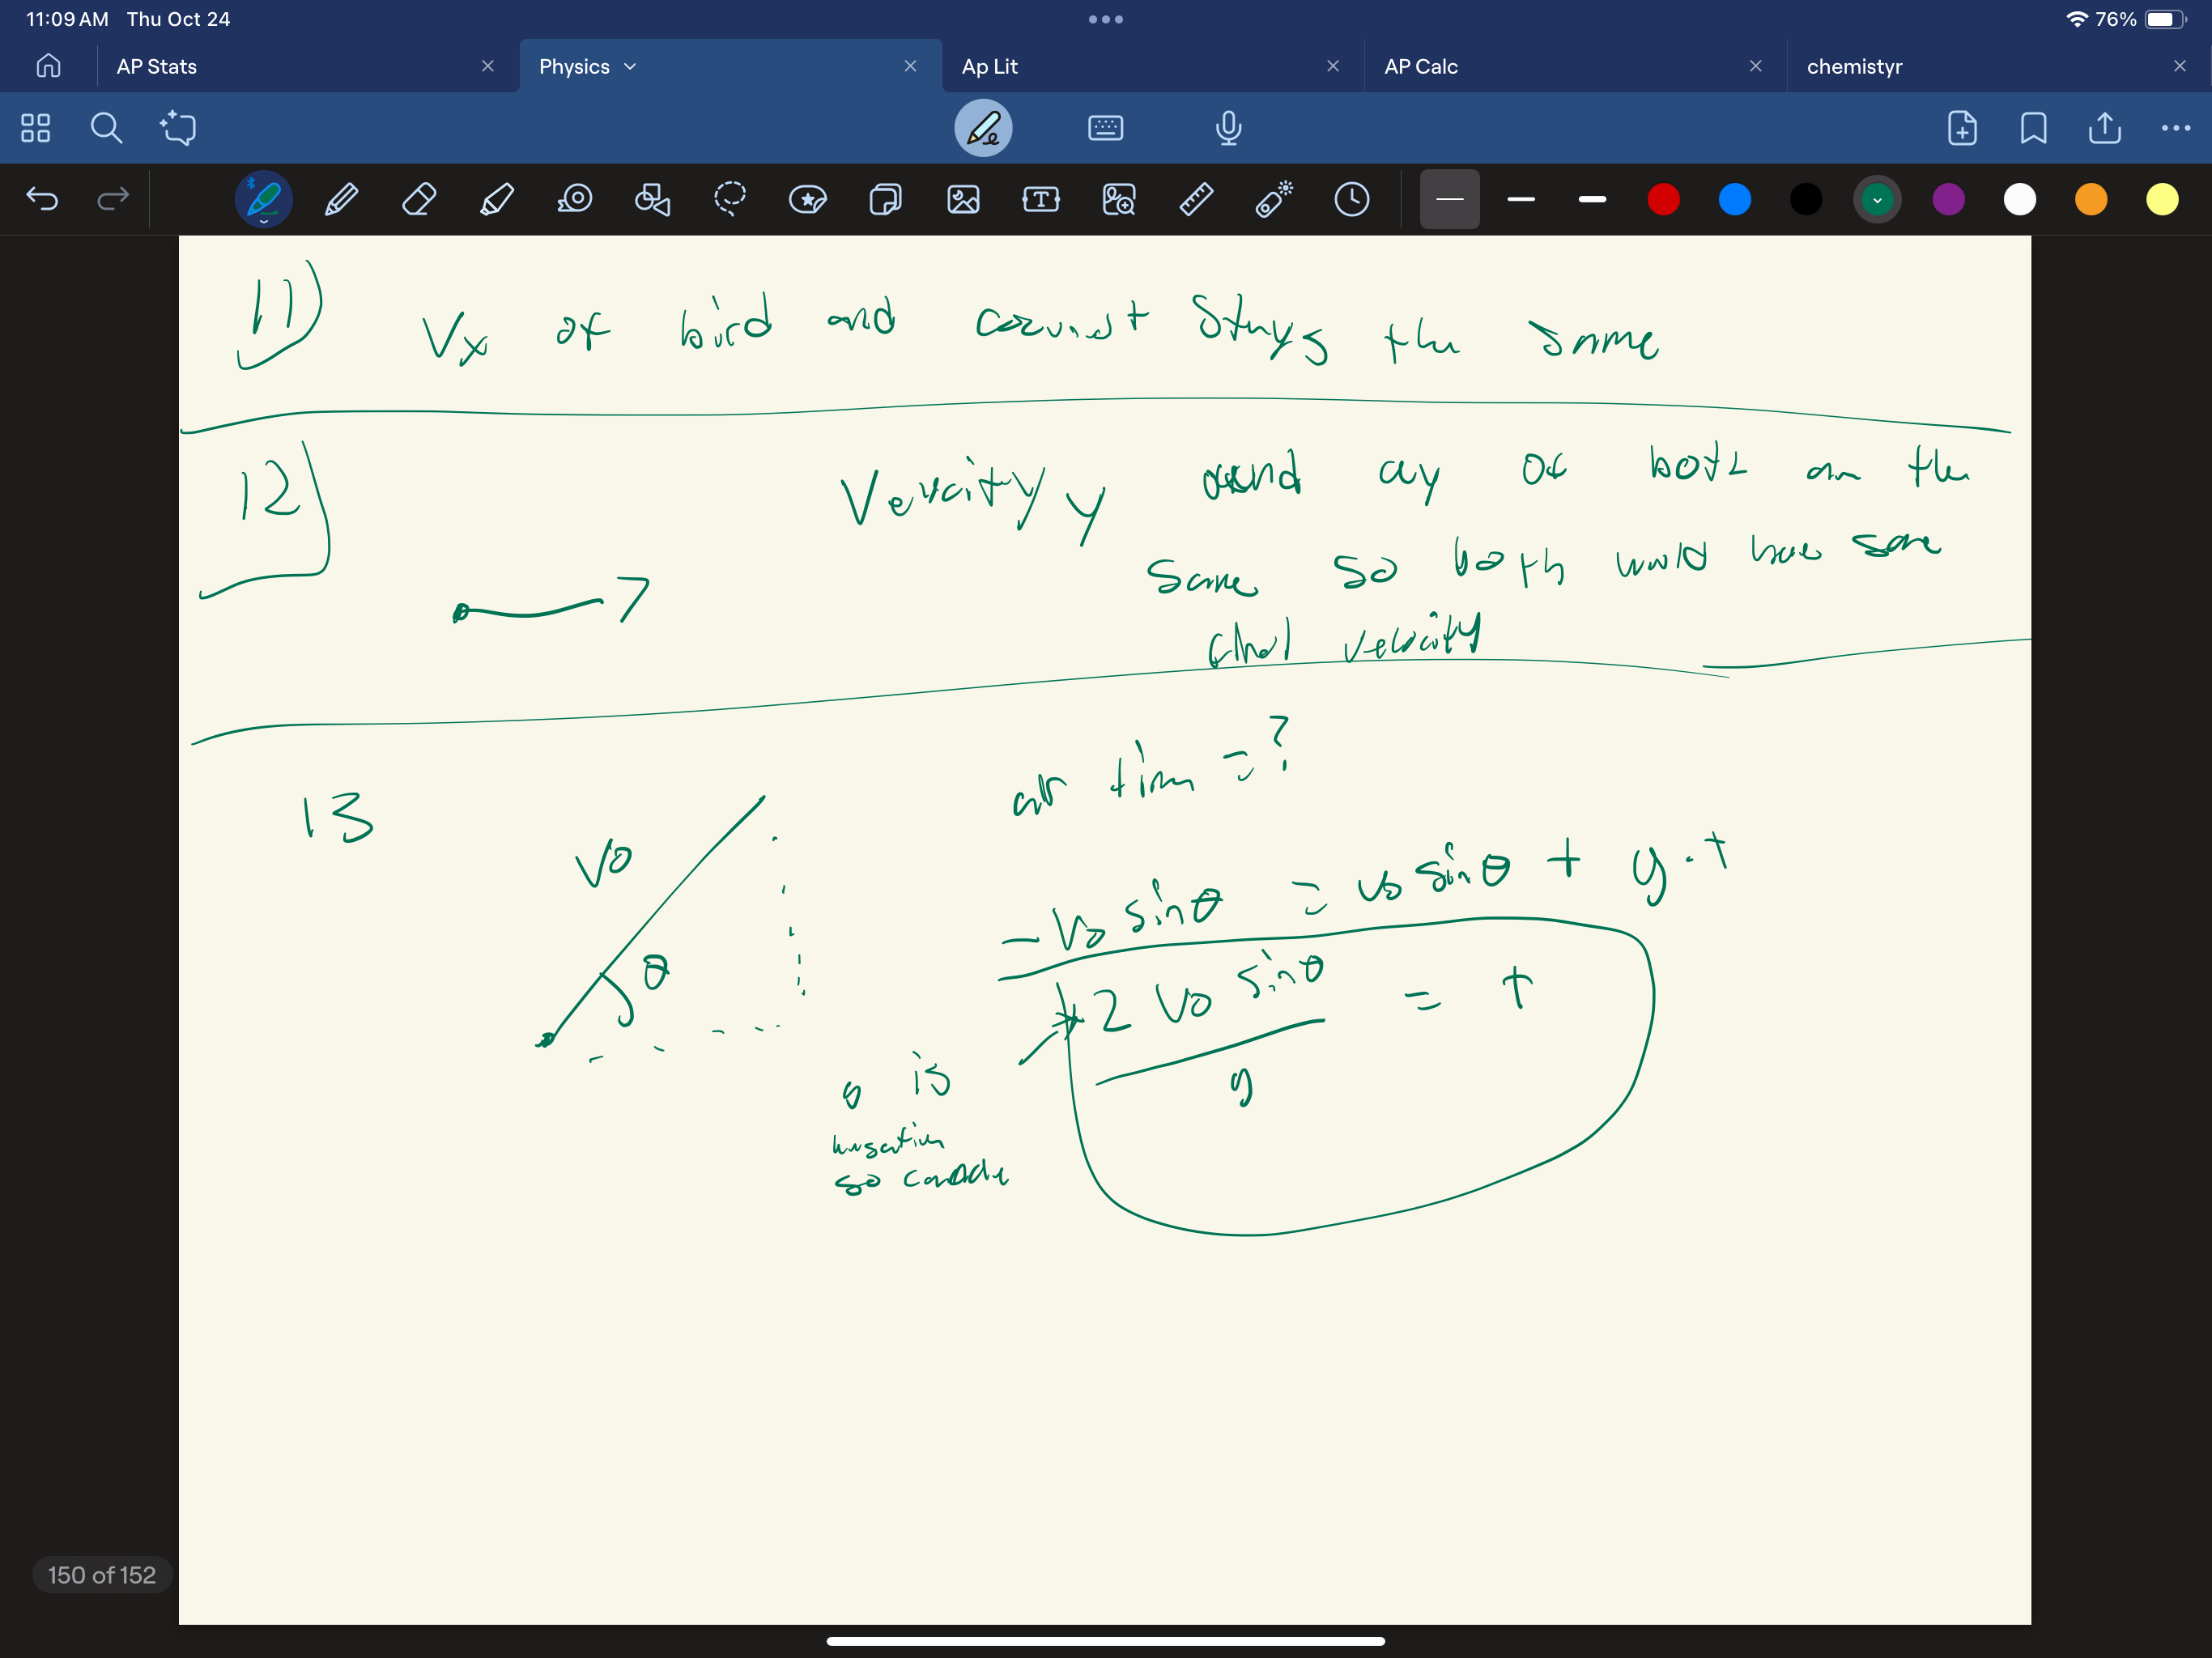 11:09 AM Thu Oct 24
76%
AP Stats
Physics
Ap Lit
AP Calc
chemistyr
11)
Vx of bird and stays the same
12)
Velocity y and ay of both are the
same so both would have same
final velocity
13
air time = ?
V0
θ
- V0 sinθ = V0 sinθ + g·t
2 V0 sinθ = t
g
g is
negative
so cancel
150 of 152